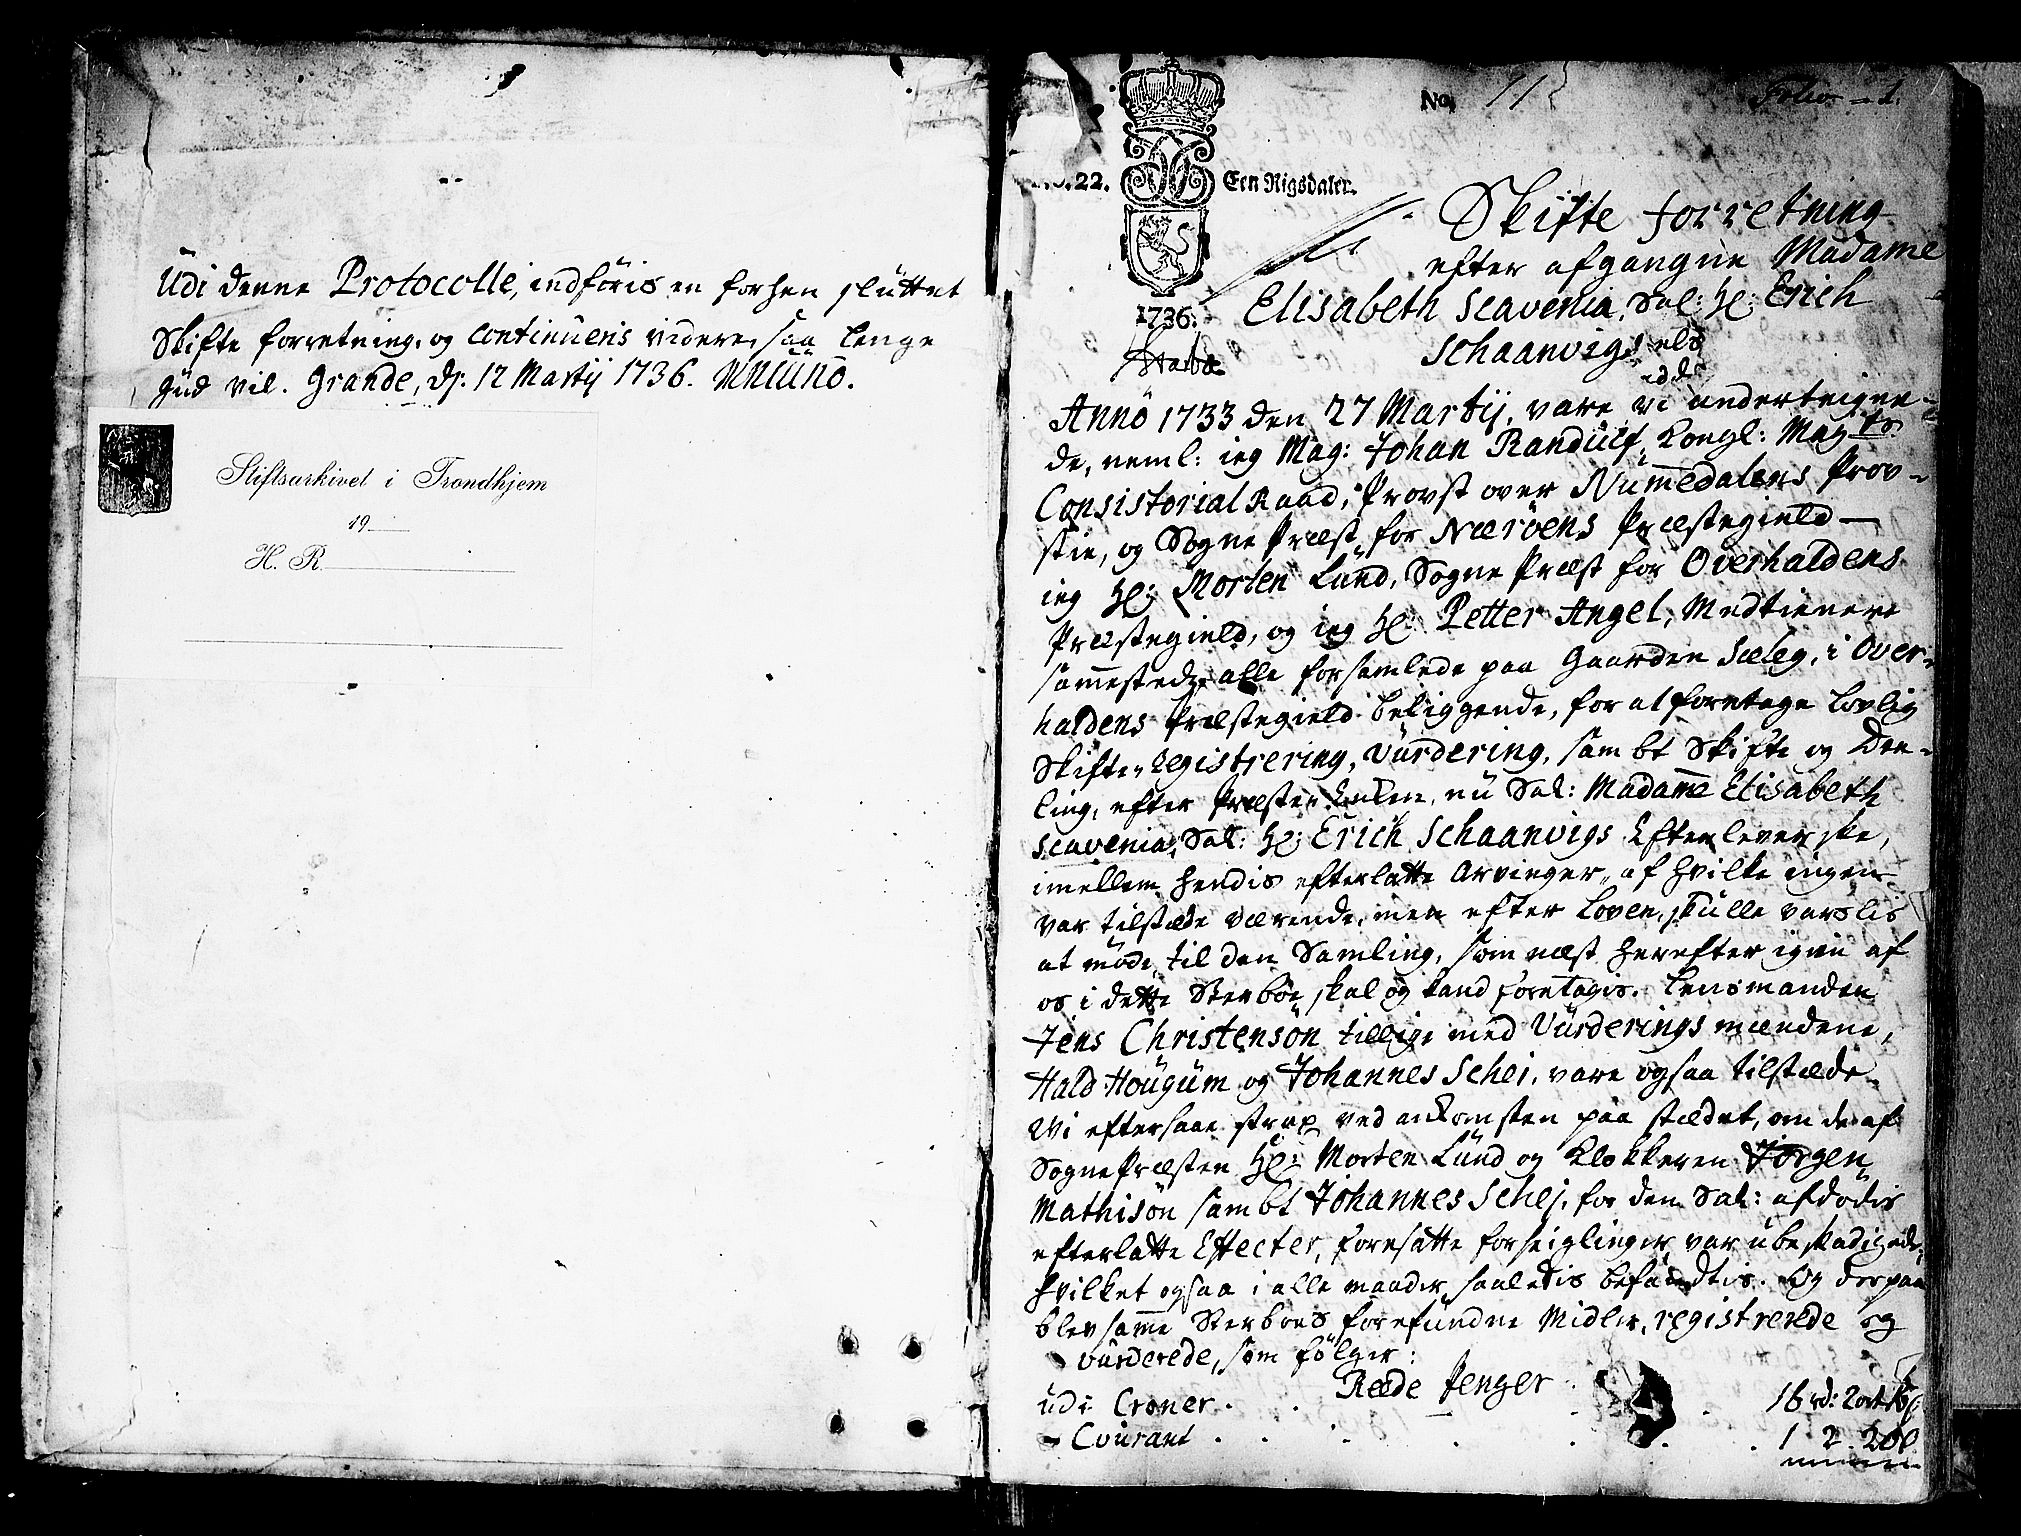 Udi denne Protocolle, indføris en forhen sluttet
Skifte forretning, og continueris videre, saa lenge
Gud vil. Grande, dj: 12 Martij 1736.
Stiftsarkivet i Trondhjem
19
H. R.
No. 11
Folio - 1.
22. Een Rigsdaler.
1736.
Skifte forretning
efter afgangne Madame
Elisabeth Scavenia, Sal: Hr: Erich
Schaanvigs
Anno 1733 den 27 Martij, vare vi underteigne-
de, neml: ieg Mag: Johan Randulf, Kongl: Mayts
Consistorial Raad, Provst over Nummedalens Prov-
stie, og Sogne Præst for Nærøens Præstegield
ieg Hr: Morten Lund, Sogne Præst for Overhaldens
Præstegield, og ieg Hr: Petter Angel, Medtienere
sammestedz alle forsamlede paa Gaarden Sæleg, i Over-
haldens Præstegield beliggende, for at foretage Lovlig
Skifte, Registrering, Vurdering, sambt Skifte og Dee-
ling, efter Præste Enken, nu Sal: Madamme Elisabeth
Scavenia, Sal: Hr: Erich Schaanvigs Efterleverske,
imellem hendis efterlatte Arvinger, af hvilke ingen
var tilstæde værende, men efter Loven, skulle varslis
at møde til den Samling, som næst herefter igien af
os i dette Sterboe skal og kand foretagis. Lensmanden
Jens Christensøn tillige med Vurderings mændene,
Hald Hougum og Johannes Schei, vare ogsaa tilstæde.
Wi eftersaae strax ved ankomsten paa stædet, om de af
Sogne Præsten Hr: Morten Lund og Klokkeren Jørgen
Mathisøn sambt Johannes Schej, for den Sal: afdødis
efterlatte Effecter, foresatte forseiglinger, var ubeskadigede,
hvilket ogsaa i alle maader saaledis befandtis. Og derpaa
blev samme Sterboes forefundne Midler, registrerede og
vurderede, som følger:
Rede Penger
udi Croner . . . 16 rd: 2 ort
- Courant . . . 1 2 20